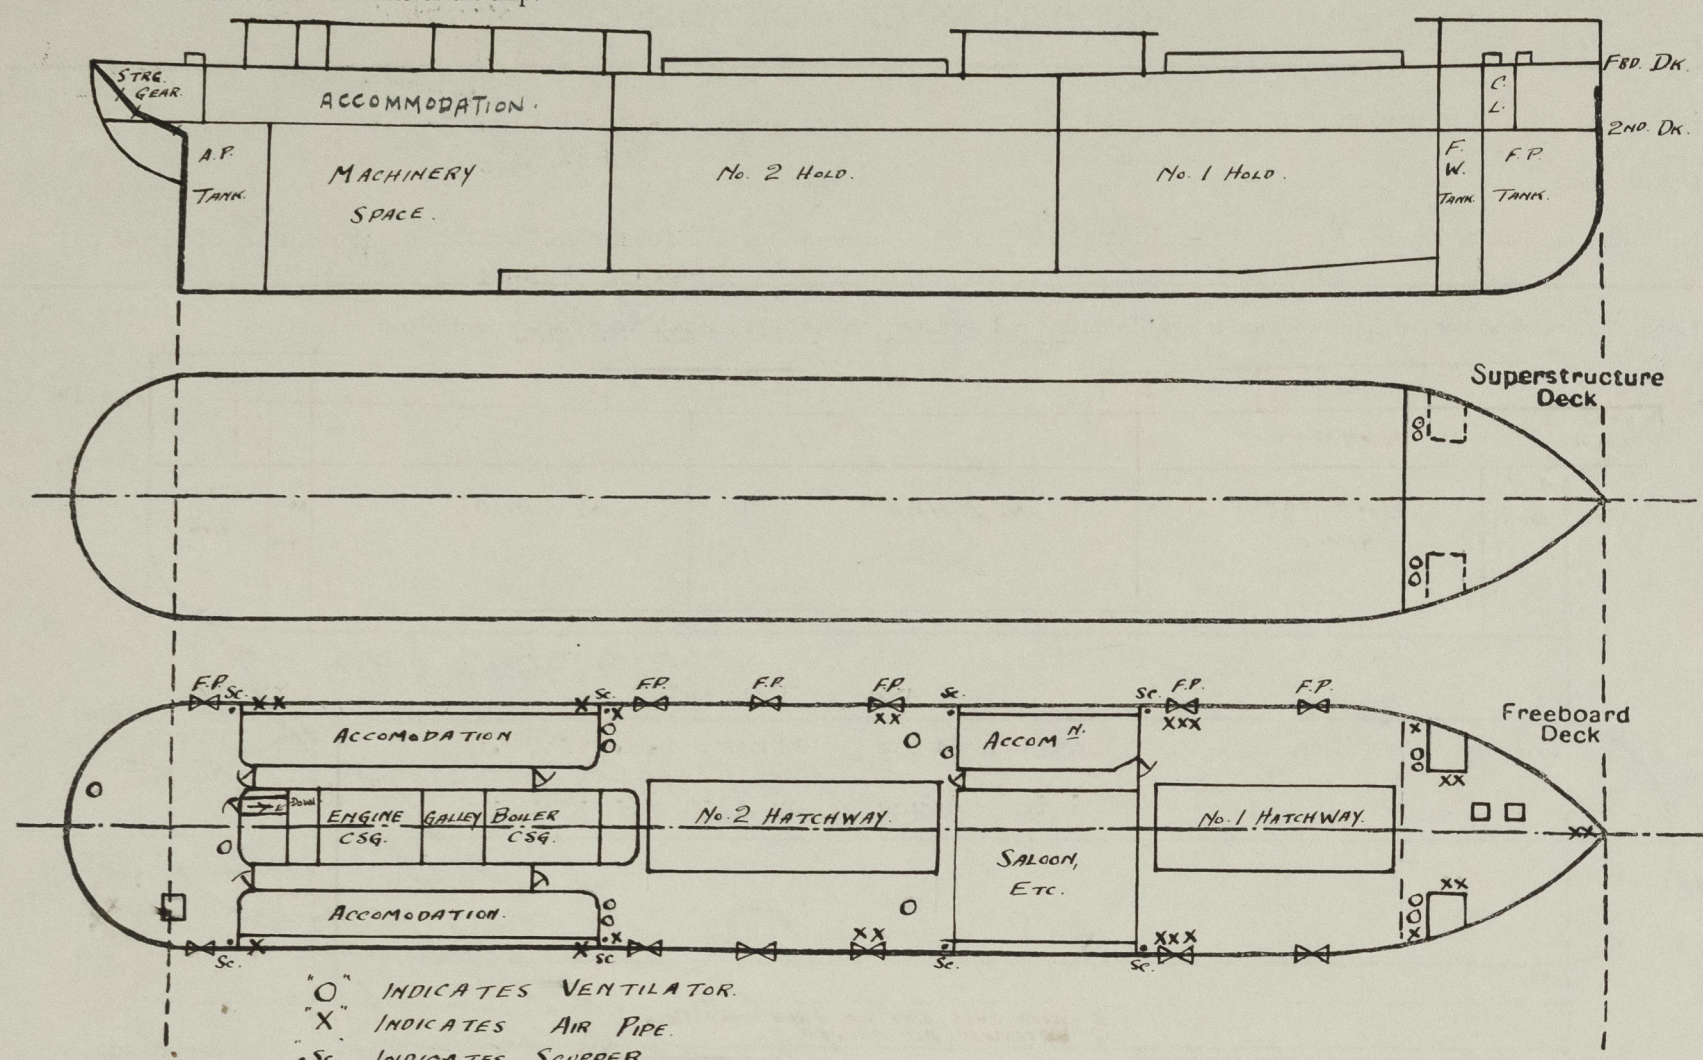 STRG.
GEAR.
ACCOMMODATION.
C.
L.
FBD. DK.
2ND. DK.
A.P.
TANK.
MACHINERY
SPACE.
No. 2 HOLD.
No. 1 HOLD.
F.
W.
TANK.
F.P.
TANK.
Superstructure
Deck
F.P. Sc. X X X Sc. F.P. F.P. F.P. Sc. Sc. F.P. F.P.
X XX XXX
Freeboard
Deck
ACCOMODATION
ACCOM N.
X
XX
DOWN
ENGINE GALLEY BOILER
CSG. CSG.
No. 2 HATCHWAY.
No. 1 HATCHWAY.
XX
SALOON,
ETC.
XX
ACCOMODATION.
X X X X XX XXX X
Sc. Sc Sc. Sc.
"O" INDICATES VENTILATOR.
"X" INDICATES AIR PIPE.
.Sc. INDICATES SCUPPER